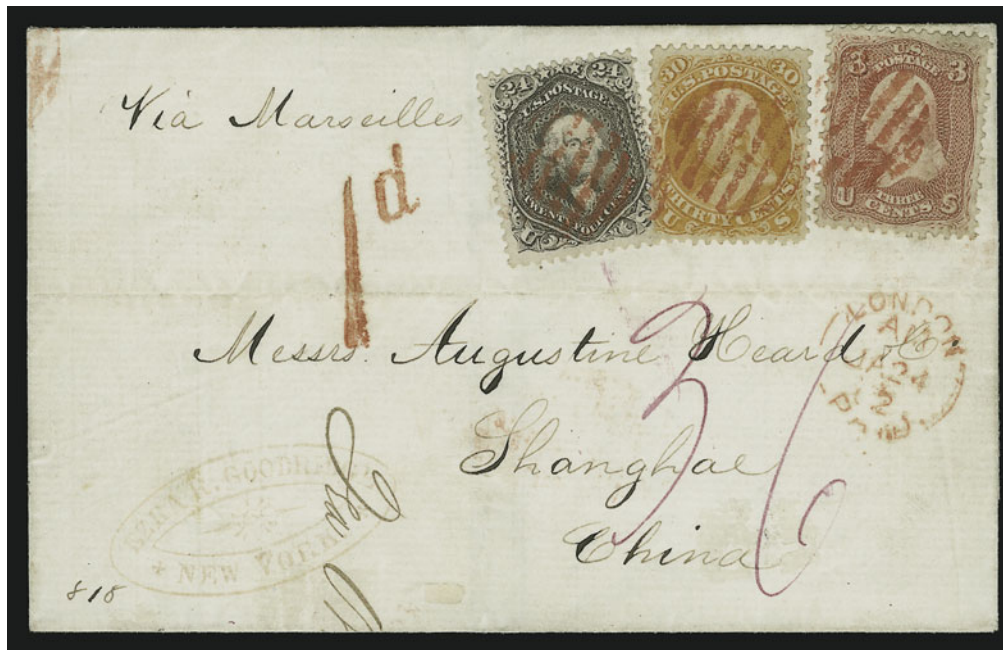 Via Marseilles
24 24
U.S. POSTAGE
TWENTY FOUR CENTS
U S
30 30
U.S. POSTAGE
THIRTY CENTS
U S
3 3
U.S. POSTAGE
THREE CENTS
U S
1d
Messrs. Augustine Heard & Co.
Shanghae
China
36
LONDON
PAID
GOODRIDGE
NEW YORK
818